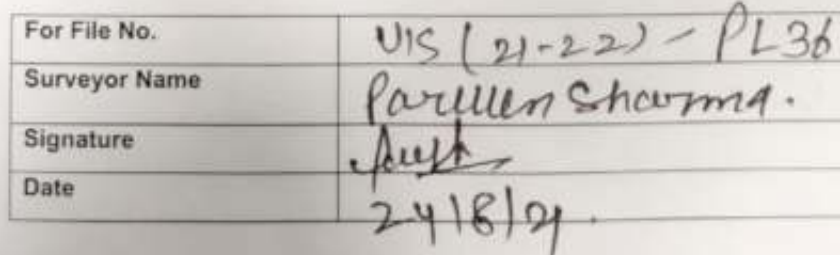 For File No. VIS (21-22) - PL36
Surveyor Name Parveen Sharma.
Signature
Date 24/8/21.